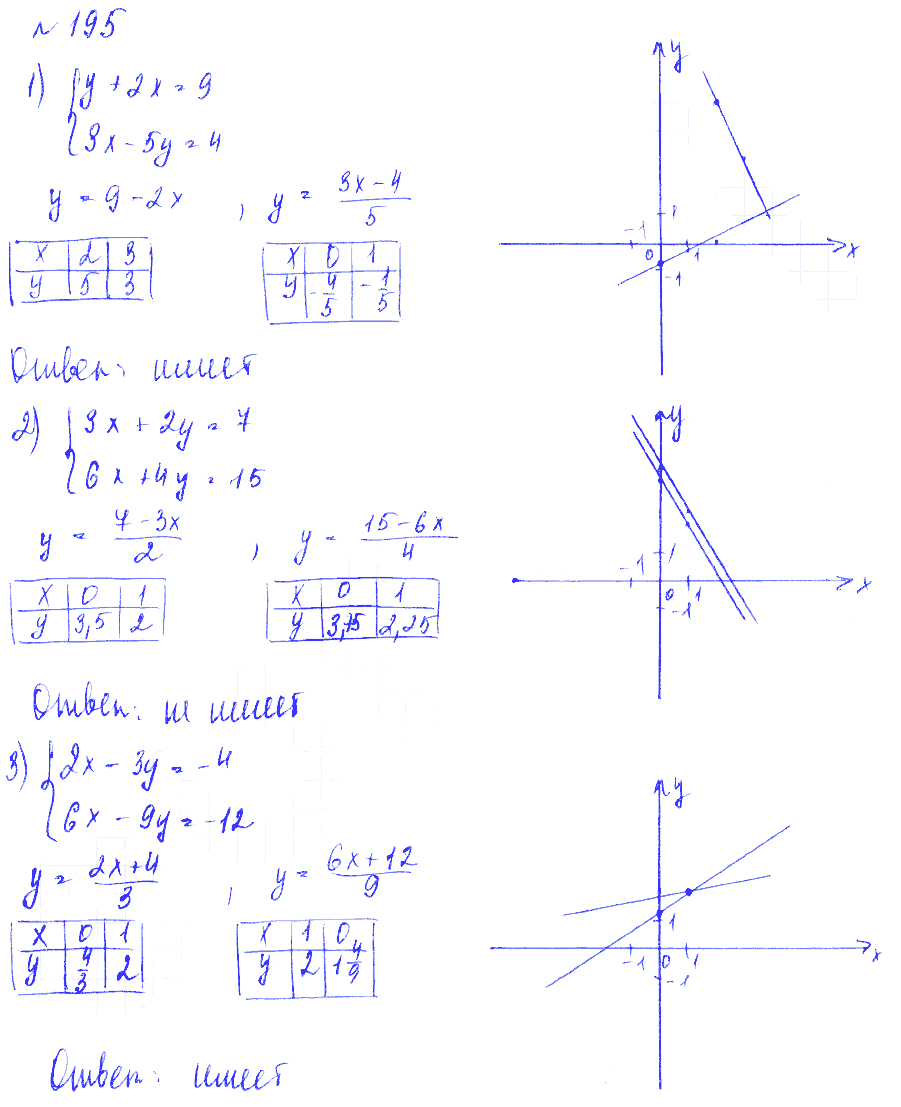 № 195
1) { y + 2x = 9
3x - 5y = 4
y = 9 - 2x , y = (3x - 4)/5
x 2 3
y 5 3
x 0 1
y -4/5 -1/5
y
-1 1
0 1 x
-1
Ответ: имеет
2) { 3x + 2y = 7
6x + 4y = 15
y = (7 - 3x)/2 , y = (15 - 6x)/4
x 0 1
y 3,5 2
x 0 1
y 3,75 2,25
y
-1 1
0 1 x
-1
Ответ: не имеет
3) { 2x - 3y = -4
6x - 9y = -12
y = (2x + 4)/3 , y = (6x + 12)/9
x 0 1
y 4/3 2
x 1 0
y 2 1 4/9
y
1
-1 0 1 x
-1
Ответ: имеет